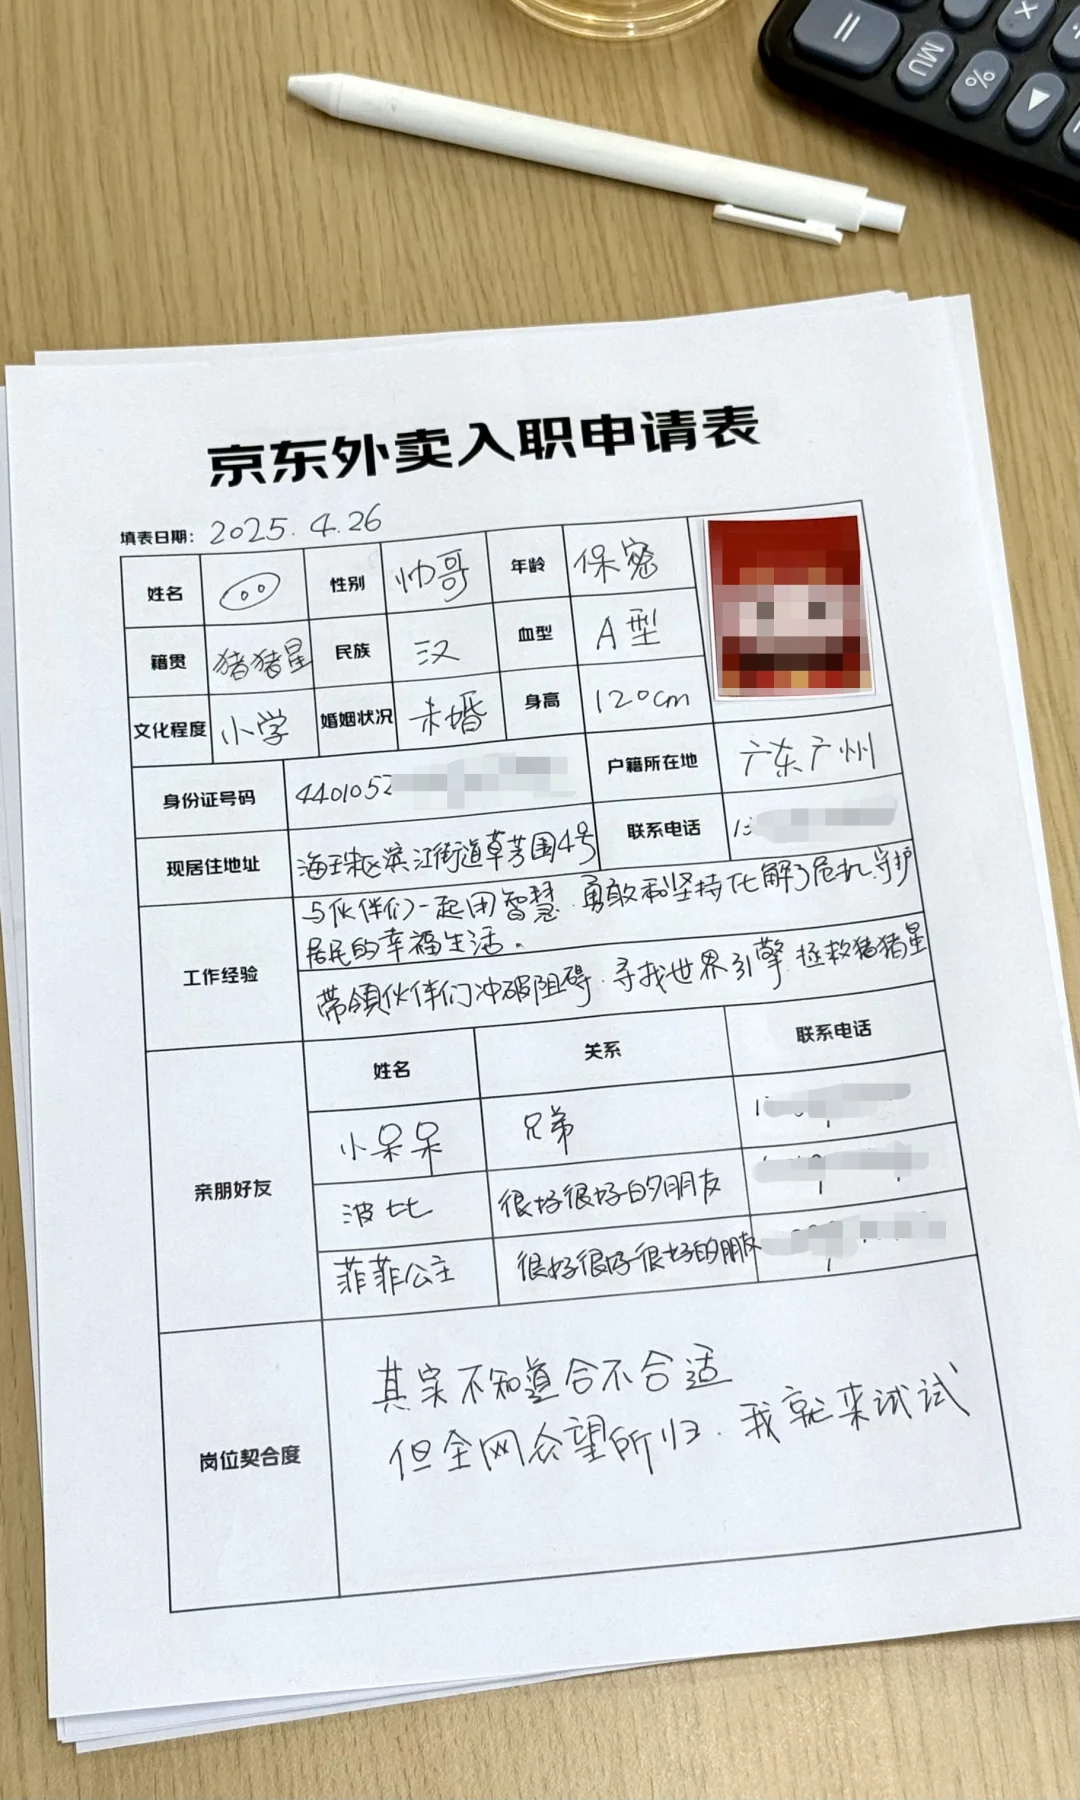 MU
%
京东外卖入职申请表
填表日期：2025.4.26
姓名 性别 帅哥 年龄 保密
籍贯 猪猪星 民族 汉 血型 A型
文化程度 小学 婚姻状况 未婚 身高 120cm
身份证号码 4401052 户籍所在地 广东广州
现居住地址 海珠区滨江街道草芳围4号 联系电话 13
工作经验
与伙伴们一起用智慧、勇敢和坚持化解了危机,守护
居民的幸福生活。
带领伙伴们冲破阻碍、寻找世界引擎、拯救猪猪星
亲朋好友
姓名 关系 联系电话
小呆呆 兄弟 1
波比 很好很好的朋友
菲菲公主 很好很好很好的朋友
岗位契合度
其实不知道合不合适
但全网众望所归、我就来试试